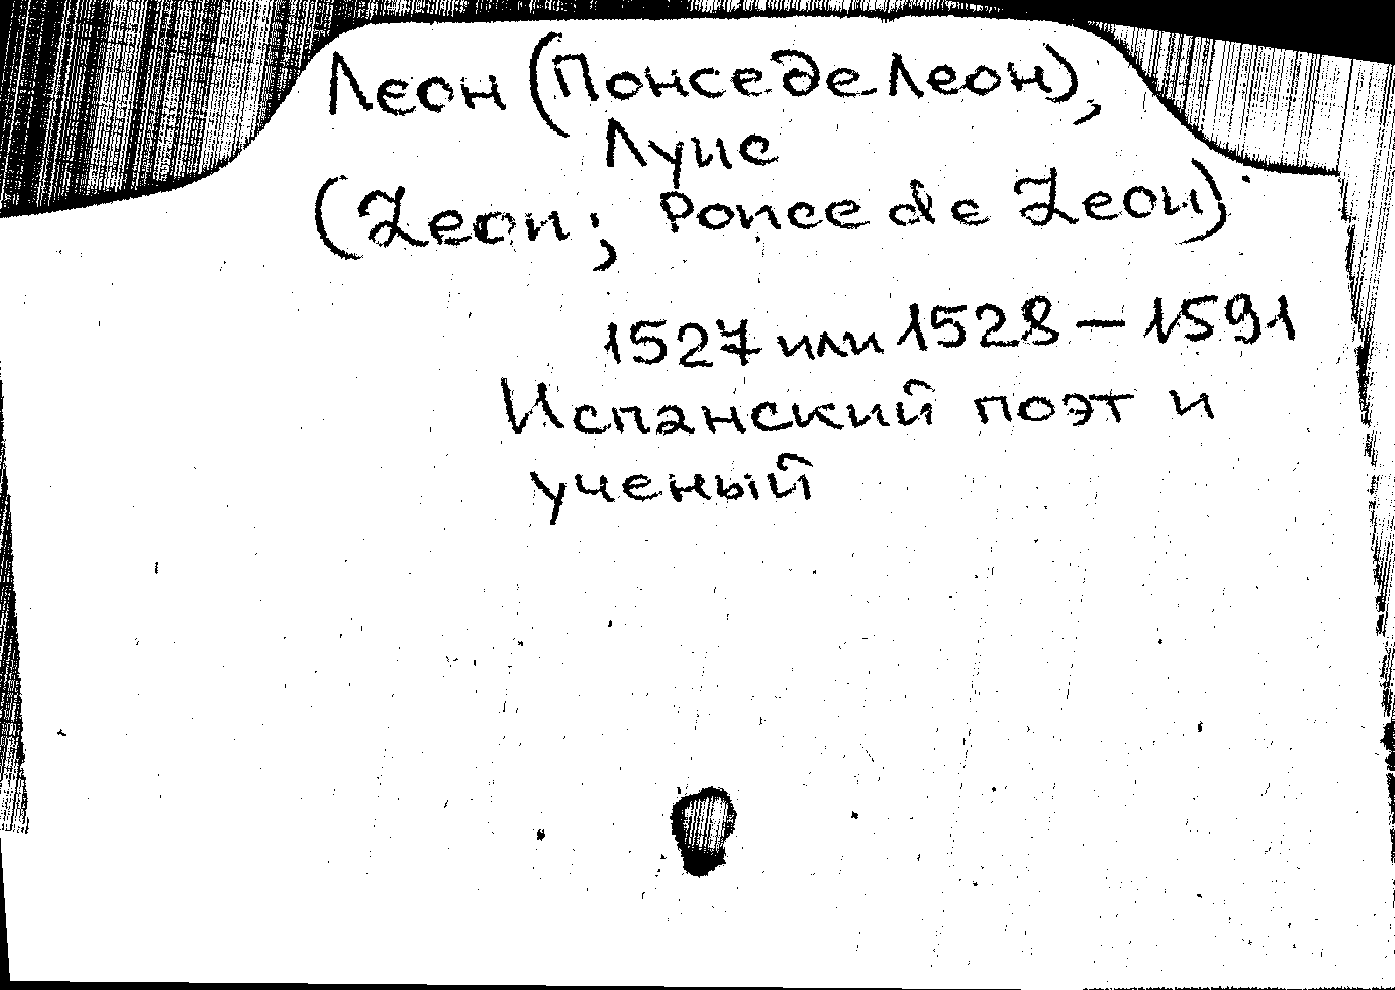 Леон (Понсе де Леон),
Луис
(Leon; Ponce de Leon).
1527 или 1528 – 1591
Испанский поэт и
ученый